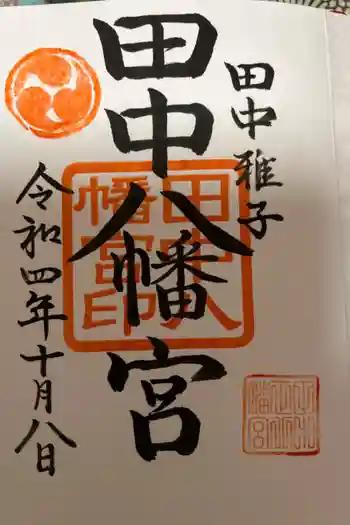 田中雅子
田中八幡宮
田中八
幡宮印
令和四年十月八日